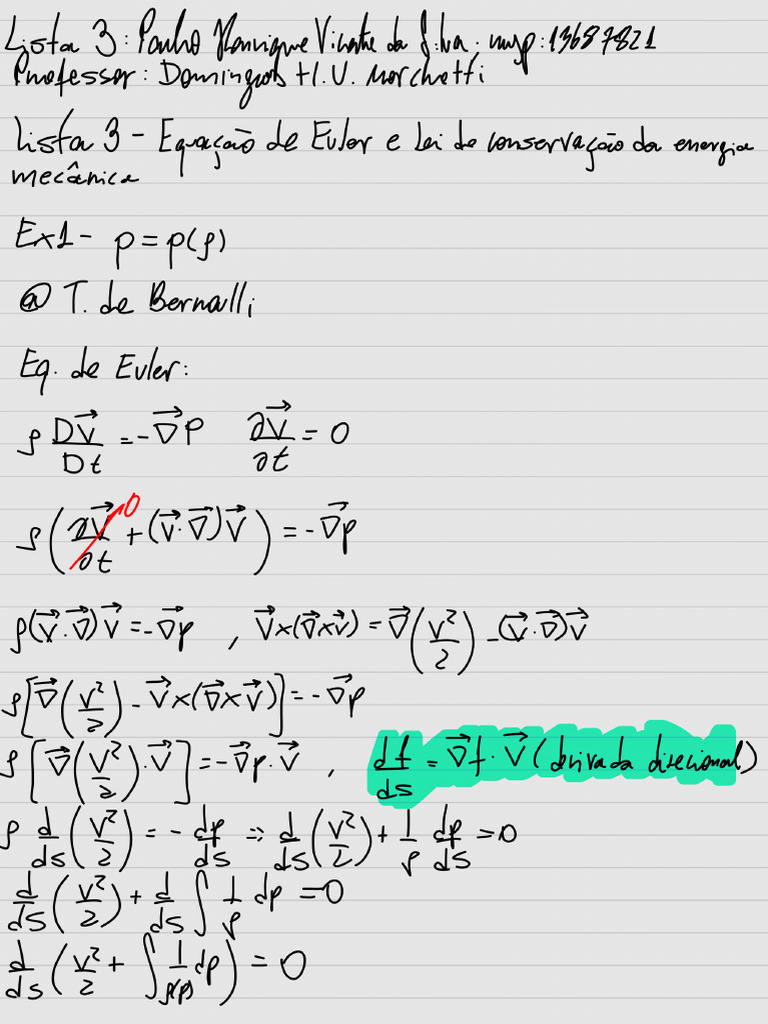 Lista 3: Paulo Henrique Vicente da Silva, nusp: 13687821
Professor: Domingos H.U. Marchetti
Lista 3 - Equação de Euler e Lei de conservação da energia
mecânica
Ex1- p = p(ρ)
@ T. de Bernolli
Eq. de Euler:
ρ D\vec{v}/Dt = -\vec{∇}P   ∂\vec{v}/∂t = 0
ρ(∂\vec{v}/∂t 0 + (\vec{v}·\vec{∇})\vec{v}) = -\vec{∇}p
ρ(\vec{v}·\vec{∇})\vec{v} = -\vec{∇}p , \vec{v}×(\vec{∇}×\vec{v}) = \vec{∇}(v²/2) - (\vec{v}·\vec{∇})\vec{v}
ρ[\vec{∇}(v²/2) - \vec{v}×(\vec{∇}×\vec{v})] = -\vec{∇}p
ρ[\vec{∇}(v²/2)·\vec{v}] = -\vec{∇}p·\vec{v} , df/ds = \vec{∇}f·\vec{v} (derivada direcional)
ρ d/ds(v²/2) = - dp/ds ⇒ d/ds(v²/2) + 1/ρ dp/ds = 0
d/ds(v²/2) + d/ds ∫ 1/ρ dp = 0
d/ds(v²/2 + ∫ 1/ρ(p) dp) = 0